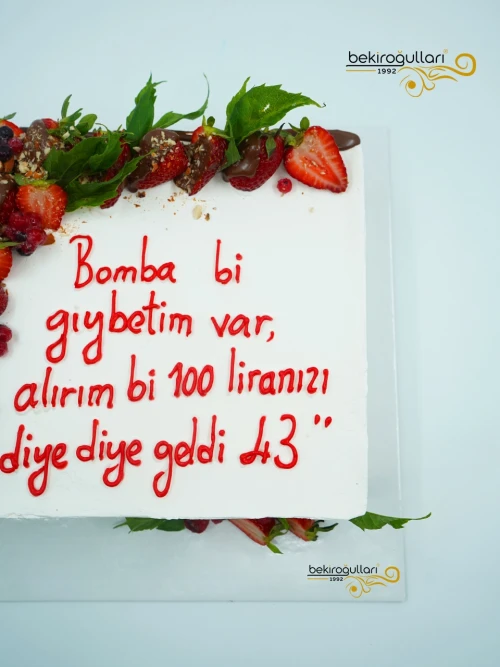 bekiroğulları
1992
Bomba bi
gıybetim var,
alırım bi 100 liranızı
diye diye geldi 43"
bekiroğulları
1992